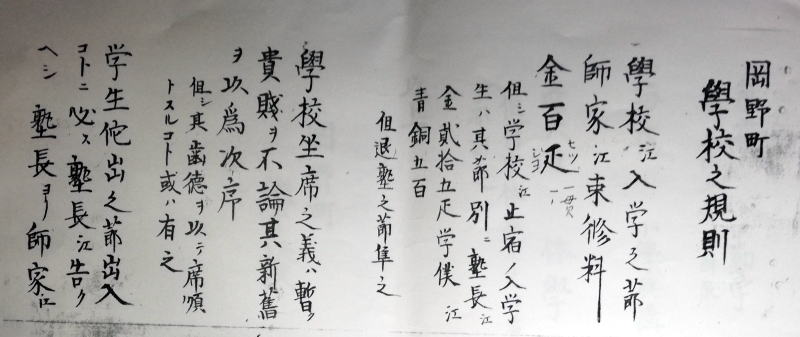 岡野町
學校之規則
學校江入学之節
師家江束修料
金百疋
但シ学校江止宿ノ入学
生ハ其節別ニ塾長江
金貳拾五疋学僕江
青銅五百
但退塾之節準之
學校坐席之義ハ暫ク
貴賤ヲ不論其新舊
ヲ以爲次序
但シ其歯德ヲ以テ席順
トスルコト或ハ有之
学生他出之節出入
コトニ必ス塾長江告ク
ヘシ 塾長ヨリ師家江